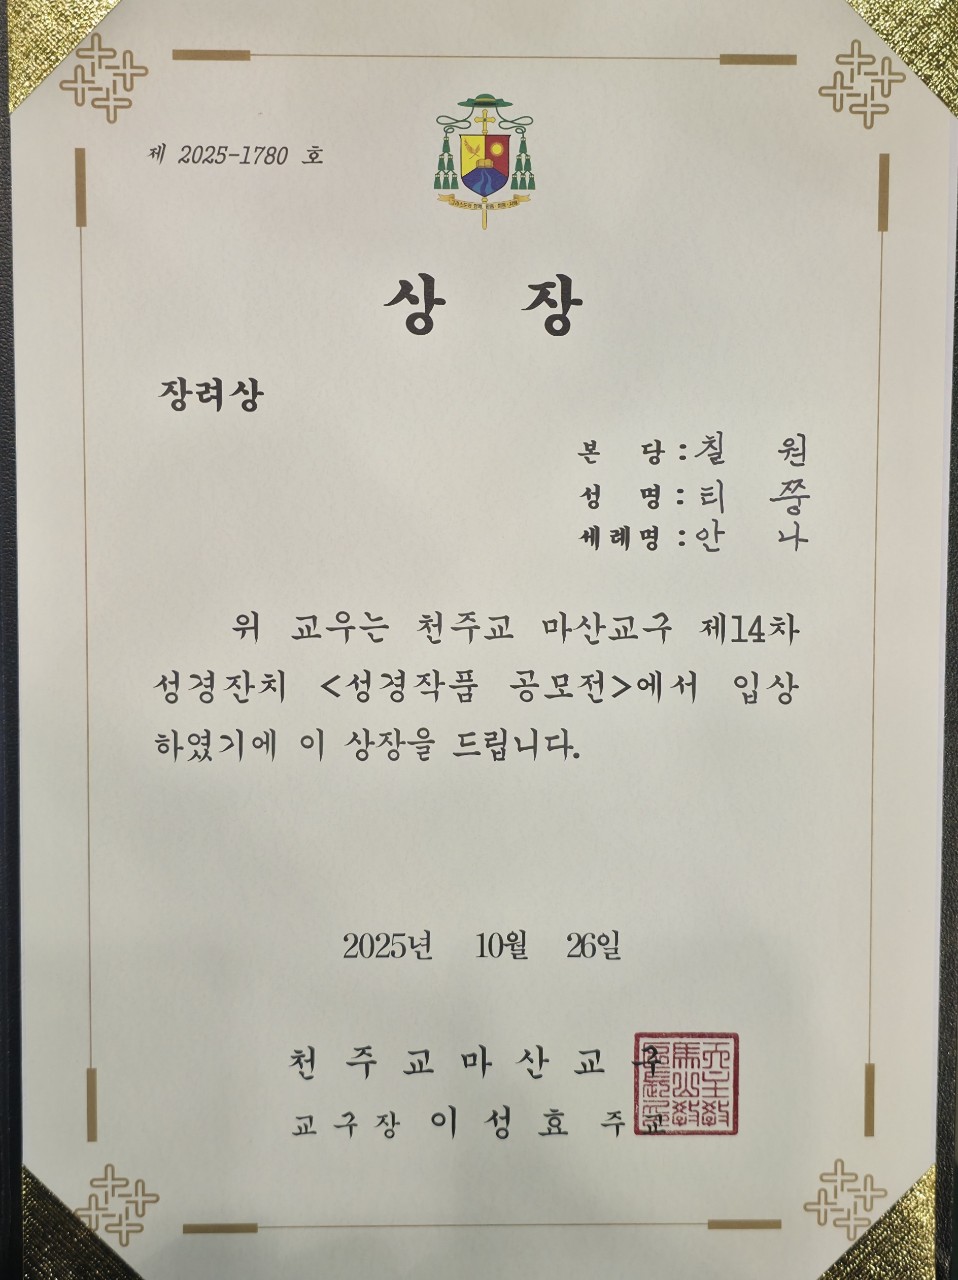 제 2025-1780 호
상 장
장려상
본 당 : 칠 원
성 명 : 티 쭝
세례명 : 안 나
위 교우는 천주교 마산교구 제14차
성경잔치 <성경작품 공모전>에서 입상
하였기에 이 상장을 드립니다.
2025년 10월 26일
천 주 교 마 산 교 구
교 구 장 이 성 효 주 교